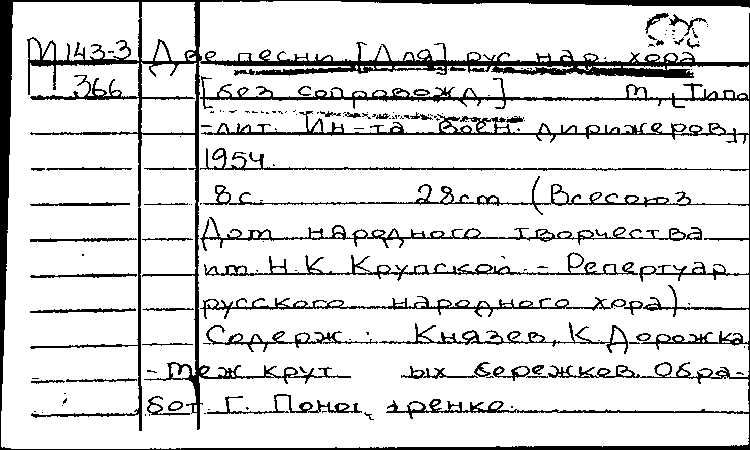 М 143-3 Две песни [Для] рус. нар. хора
366 [без сопровожд.] М., [Типо
-лит. Ин-та воен. дирижеров],
1954.
8 с. 28 cm (Всесоюз
Дом народного творчества
им. Н.К. Крупской. - Репертуар
русского народного хора).
Содерж.: Князев, К. Дорожка.
- меж крут ых бережков. Обра-
бот Г. Поно